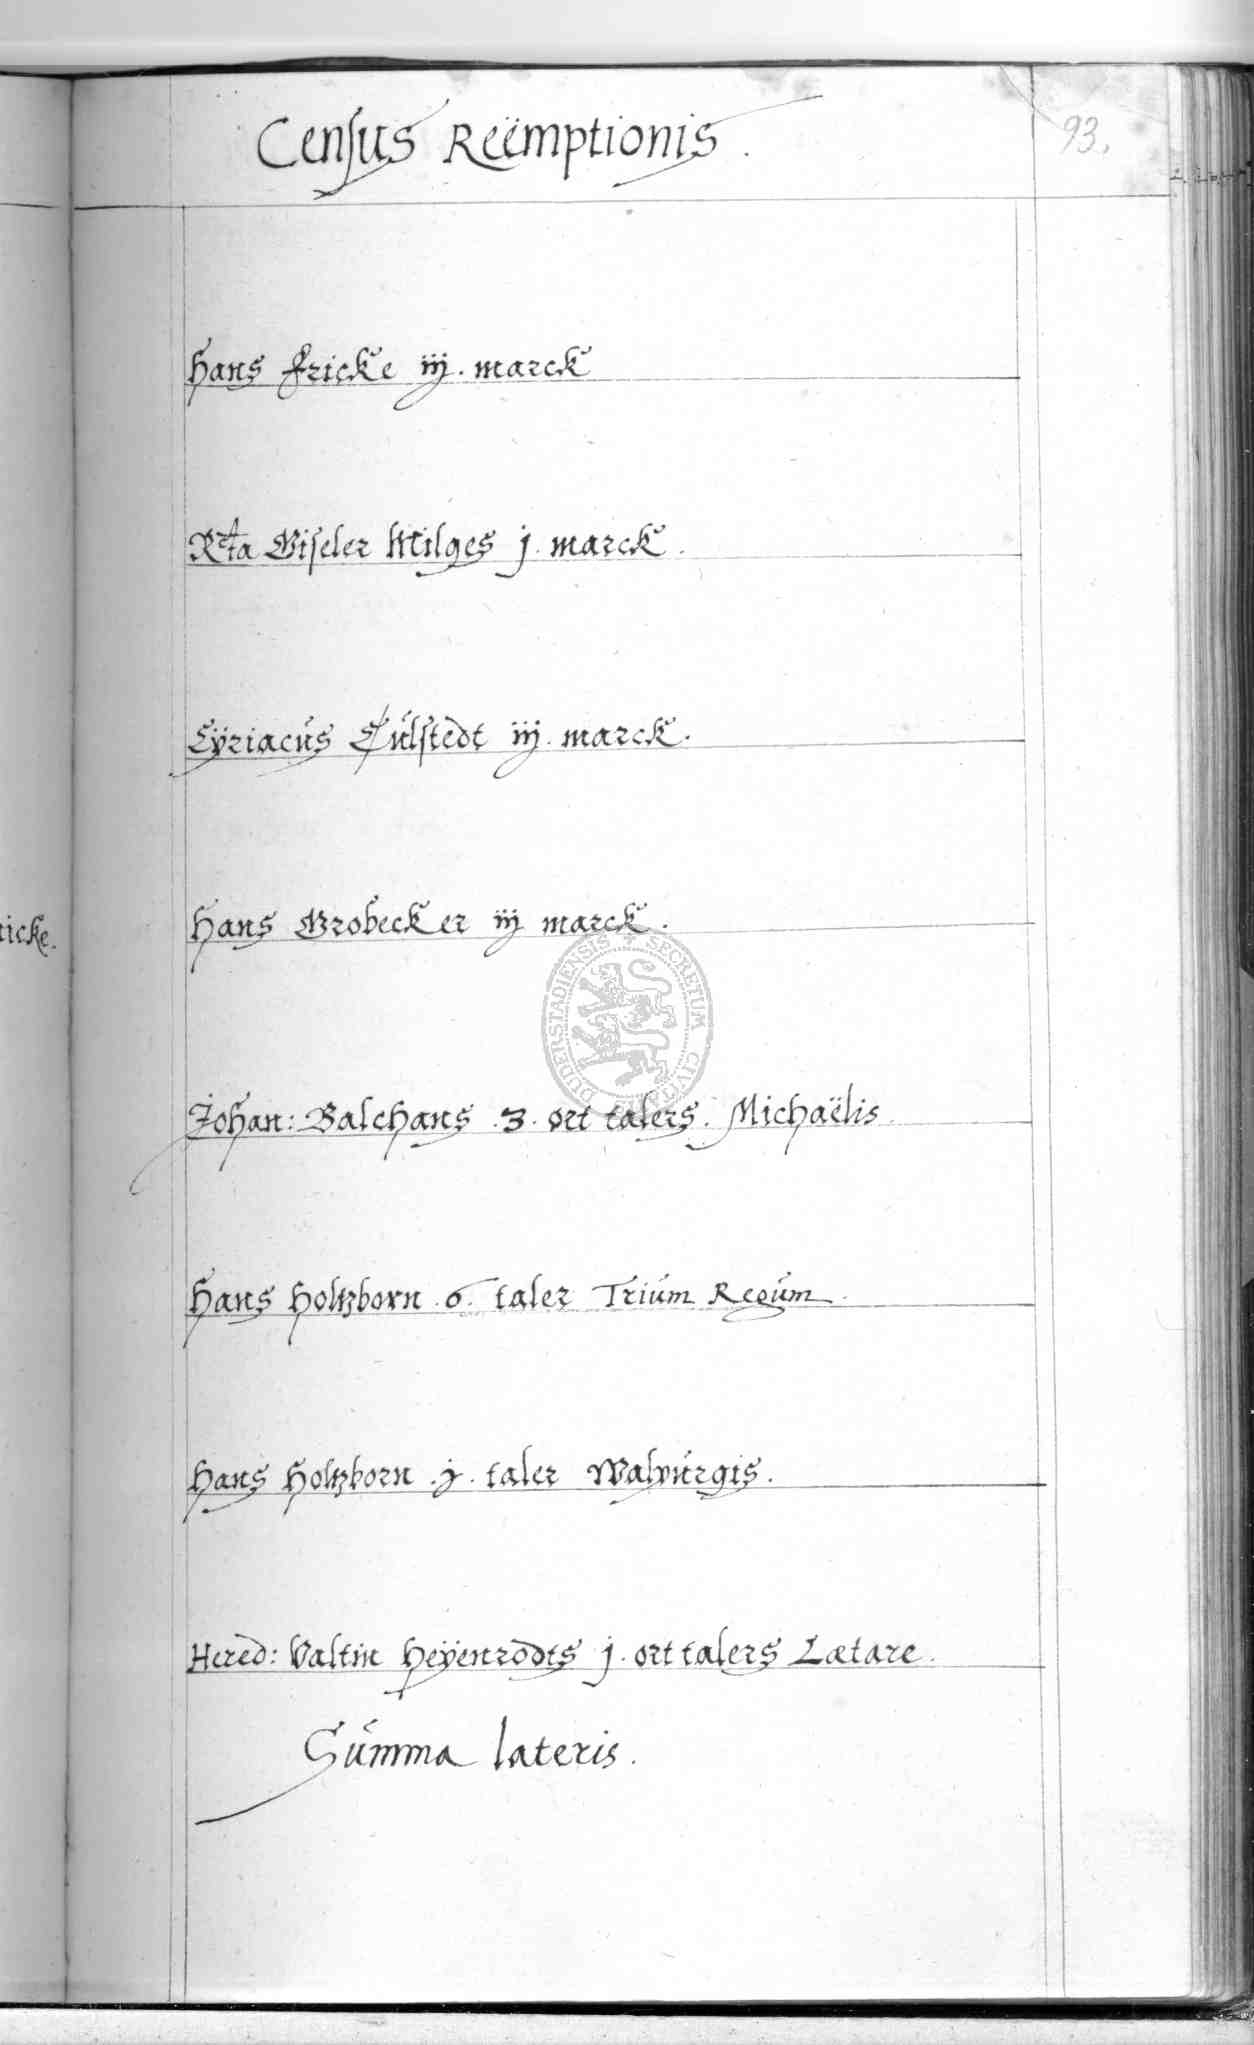 Census Reëmptionis.
93.
Hans Fricke iij. marck
Rta Giseler Milges j. marck.
Cÿriacus Culstedt iij. marck.
Hans Grobecker iij marck.
icke.
DUDERSTADIENSIS + SECRETUM CIVITATIS
Johan: Balchans .3. ort talers. Michaëlis.
Hans Holtzborn .6. taler Trium Regum.
Hans Holtzborn .j. taler Walpurgis.
Hered: Valtin Heÿenrodts j. ort talers Lætare.
Summa lateris.